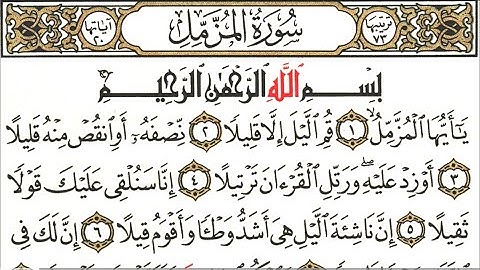 ترتيبها ٧٣ سُورَةُ المُزَّمِّلِ آياتها ٢٠
بِسْمِ اللَّهِ الرَّحْمَٰنِ الرَّحِيمِ
يَٰٓأَيُّهَا ٱلْمُزَّمِّلُ ١ قُمِ ٱلَّيْلَ إِلَّا قَلِيلًا ٢ نِّصْفَهُۥٓ أَوِ ٱنقُصْ مِنْهُ قَلِيلًا
٣ أَوْ زِدْ عَلَيْهِ وَرَتِّلِ ٱلْقُرْءَانَ تَرْتِيلًا ٤ إِنَّا سَنُلْقِى عَلَيْكَ قَوْلًا
ثَقِيلًا ٥ إِنَّ نَاشِئَةَ ٱلَّيْلِ هِىَ أَشَدُّ وَطْـًٔا وَأَقْوَمُ قِيلًا ٦ إِنَّ لَكَ فِى